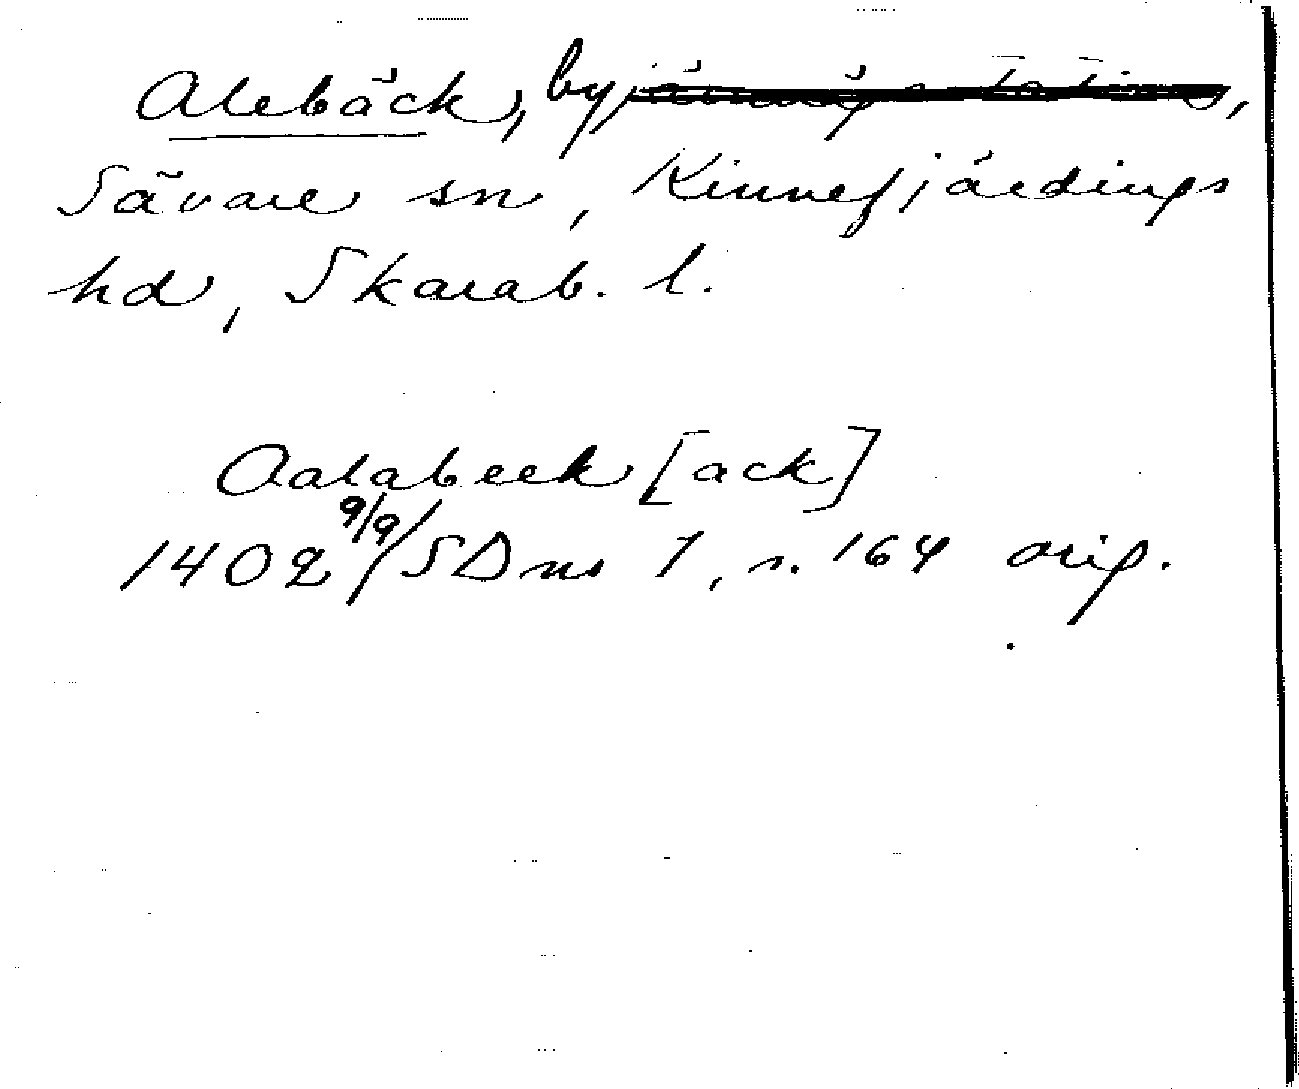 Alebäck, by järnvägsstation,
Sävare sn, Kinnefjärdings
hd, Skarab. l.
Aalabeck [ack]
1402 9/9/SDns 1, n. 164 orig.